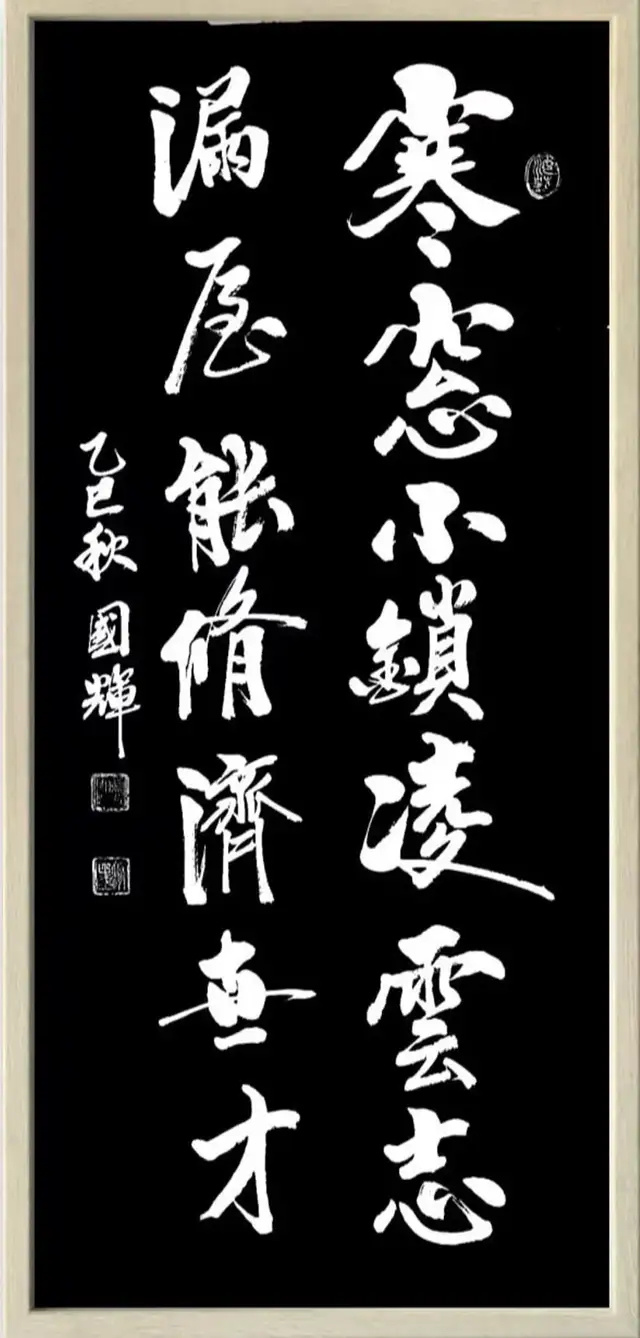 寒窓不鎖凌雲志
漏屋能脩濟世才
乙巳秋 國輝